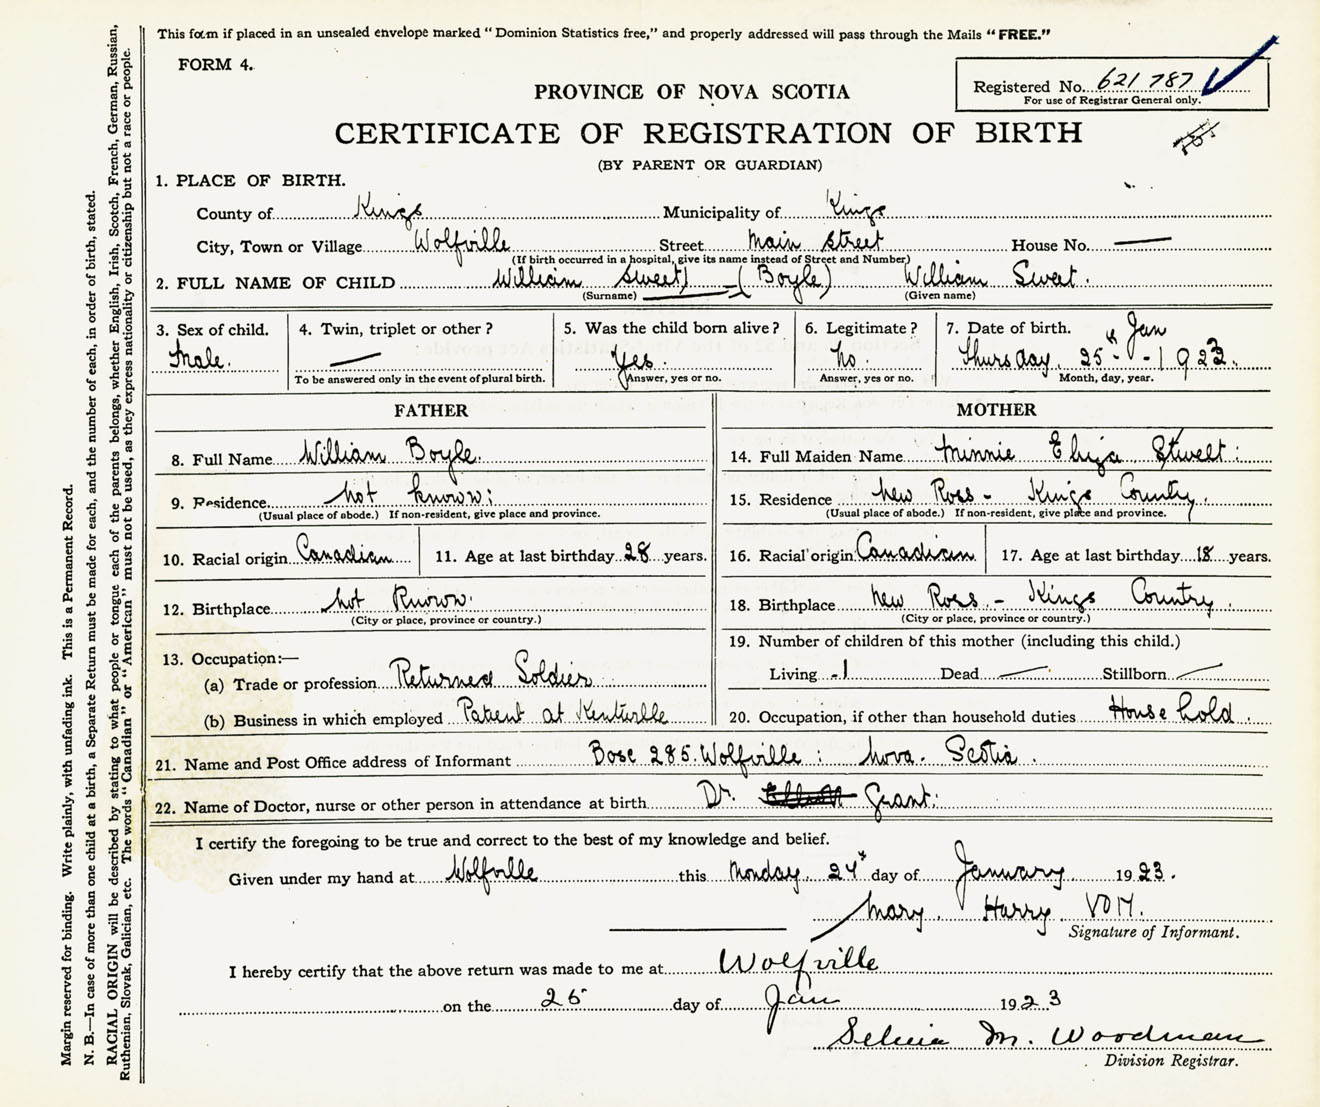 This form if placed in an unsealed envelope marked "Dominion Statistics free," and properly addressed will pass through the Mails "FREE."
FORM 4.
Registered No. 621787
For use of Registrar General only.
PROVINCE OF NOVA SCOTIA
CERTIFICATE OF REGISTRATION OF BIRTH
(BY PARENT OR GUARDIAN)
1. PLACE OF BIRTH.
County of Kings Municipality of Kings
City, Town or Village Wolfville Street Main Street House No. —
(If birth occurred in a hospital, give its name instead of Street and Number)
2. FULL NAME OF CHILD William Sweet) (Boyle) William Sweet.
(Surname) (Given name)
3. Sex of child. 4. Twin, triplet or other? 5. Was the child born alive? 6. Legitimate? 7. Date of birth. Jan
Male. — Yes. No. Thursday. 25th - 1923.
To be answered only in the event of plural birth. Answer, yes or no. Answer, yes or no. Month, day, year.
FATHER MOTHER
8. Full Name William Boyle. 14. Full Maiden Name Minnie Eliza
9. Residence not known: 15. Residence New Ross - Kings Country.
(Usual place of abode.) If non-resident, give place and province. (Usual place of abode.) If non-resident, give place and province.
10. Racial origin Canadian 11. Age at last birthday 28 years. 16. Racial origin Canadian 17. Age at last birthday 18 years.
12. Birthplace not Known. 18. Birthplace New Ross - Kings Country.
(City or place, province or country.) (City or place, province or country.)
13. Occupation:— 19. Number of children of this mother (including this child.)
(a) Trade or profession Returned Soldier Living -1 Dead — Stillborn —
(b) Business in which employed Patient at Kentville 20. Occupation, if other than household duties House hold.
21. Name and Post Office address of Informant Bose 285. Wolfville: Nova. Scotia.
22. Name of Doctor, nurse or other person in attendance at birth Dr. Grant:
I certify the foregoing to be true and correct to the best of my knowledge and belief.
Given under my hand at Wolfville this Monday. 24th day of January 1923.
Mary. Harry VON.
Signature of Informant.
I hereby certify that the above return was made to me at Wolfville
on the 26 day of Jan 1923
M. Woodman
Division Registrar.
Margin reserved for binding. Write plainly, with unfading ink. This is a Permanent Record.
N. B.—In case of more than one child at a birth, a Separate Return must be made for each, and the number of each, in order of birth, stated.
RACIAL ORIGIN will be described by stating to what people or tongue each of the parents belongs, whether English, Irish, Scotch, French, German, Russian,
Ruthenian, Slovak, Galician, etc. The words "Canadian" or "American" must not be used, as they express nationality or citizenship but not a race or people.